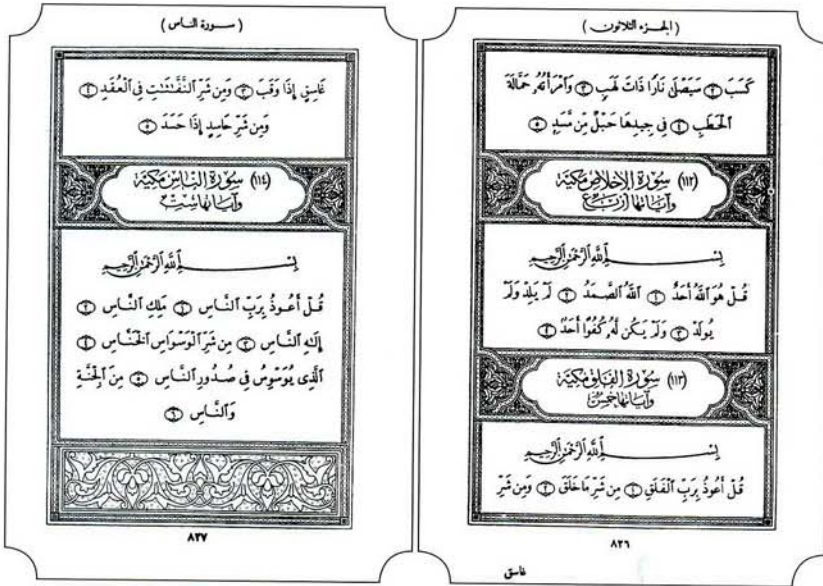 ( الجزء الثلاثون )
كَسَبَ ٢ سَيَصْلَىٰ نَارًا ذَاتَ لَهَبٍ ٣ وَٱمْرَأَتُهُۥ حَمَّالَةَ
ٱلْحَطَبِ ٤ فِي جِيدِهَا حَبْلٌ مِّن مَّسَدٍ ٥
(١١٢) سُورَةُ الإِخْلَاصِ مَكِيَّة
وَآيَاتُهَا أَرْبَعٌ
بِسْمِ ٱللَّهِ ٱلرَّحْمَٰنِ ٱلرَّحِيمِ
قُلْ هُوَ ٱللَّهُ أَحَدٌ ١ ٱللَّهُ ٱلصَّمَدُ ٢ لَمْ يَلِدْ وَلَمْ
يُولَدْ ٣ وَلَمْ يَكُن لَّهُۥ كُفُوًا أَحَدٌ ٤
(١١٣) سُورَةُ الفَلَقِ مَكِيَّة
وَآيَاتُهَا خَمْسٌ
بِسْمِ ٱللَّهِ ٱلرَّحْمَٰنِ ٱلرَّحِيمِ
قُلْ أَعُوذُ بِرَبِّ ٱلْفَلَقِ ١ مِن شَرِّ مَا خَلَقَ ٢ وَمِن شَرِّ
٨٢٦
غاسق
( سورة الناس )
غَاسِقٍ إِذَا وَقَبَ ٣ وَمِن شَرِّ ٱلنَّفَّٰثَٰتِ فِي ٱلْعُقَدِ ٤
وَمِن شَرِّ حَاسِدٍ إِذَا حَسَدَ ٥
(١١٤) سُورَةُ النَّاسِ مَكِيَّة
وَآيَاتُهَا سِتٌّ
بِسْمِ ٱللَّهِ ٱلرَّحْمَٰنِ ٱلرَّحِيمِ
قُلْ أَعُوذُ بِرَبِّ ٱلنَّاسِ ١ مَلِكِ ٱلنَّاسِ ٢
إِلَٰهِ ٱلنَّاسِ ٣ مِن شَرِّ ٱلْوَسْوَاسِ ٱلْخَنَّاسِ ٤
ٱلَّذِي يُوَسْوِسُ فِي صُدُورِ ٱلنَّاسِ ٥ مِنَ ٱلْجِنَّةِ
وَٱلنَّاسِ ٦
٨٢٧